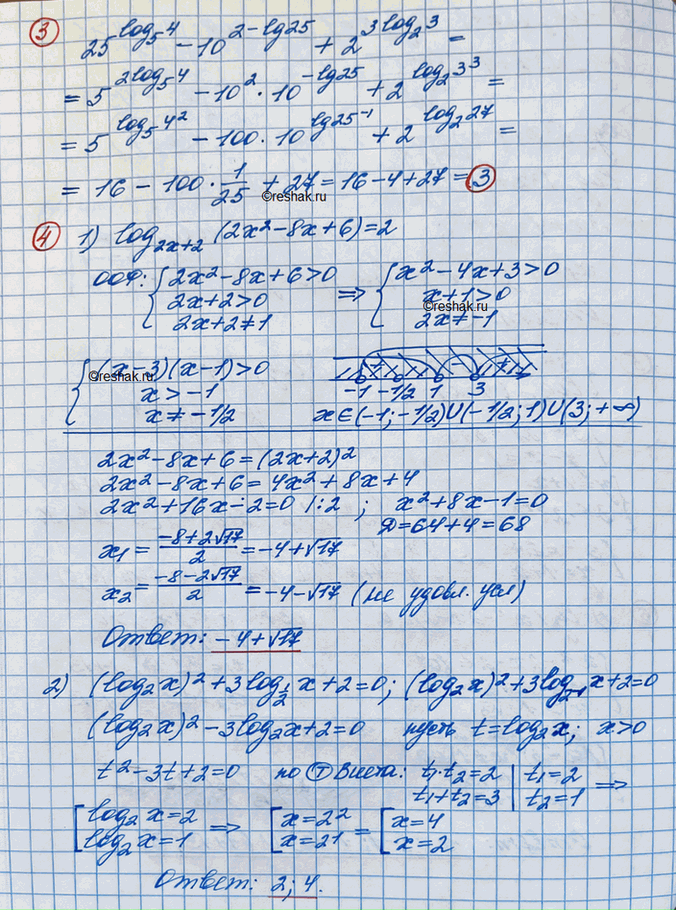 ③ 25^(log₅4) − 10^(2−lg25) + 2^(3log₂3) =
= 5^(2log₅4) − 10² · 10^(−lg25) + 2^(log₂3³) =
= 5^(log₅4²) − 100 · 10^(lg25⁻¹) + 2^(log₂27) =
= 16 − 100 · 1/25 + 27 = 16 − 4 + 27 = 3
©reshak.ru
④ 1) log₂ₓ₊₂ (2x² − 8x + 6) = 2
ООФ: { 2x² − 8x + 6 > 0 ⇒ { x² − 4x + 3 > 0
2x + 2 > 0 x + 1 > 0
©reshak.ru
2x + 2 ≠ 1 2x ≠ −1
{ (x − 3)(x − 1) > 0
©reshak.ru
x > −1 −1 −1/2 1 3
x ≠ −1/2 x ∈ (−1; −1/2) U (−1/2; 1) U (3; +∞)
2x² − 8x + 6 = (2x + 2)²
2x² − 8x + 6 = 4x² + 8x + 4
2x² + 16x − 2 = 0 | : 2 ; x² + 8x − 1 = 0
D = 64 + 4 = 68
x₁ = (−8 + 2√17)/2 = −4 + √17
x₂ = (−8 − 2√17)/2 = −4 − √17 (не удовл. усл)
Ответ: −4 + √17
2) (log₂x)² + 3log_(1/2) x + 2 = 0; (log₂x)² + 3log_(2⁻¹) x + 2 = 0
(log₂x)² − 3log₂x + 2 = 0 пусть t = log₂x; x > 0
t² − 3t + 2 = 0 по Ⓣ Виета: t₁·t₂ = 2 | t₁ = 2 ⇒
t₁ + t₂ = 3 | t₂ = 1
[ log₂x = 2 ⇒ [ x = 2² = [ x = 4
log₂x = 1 x = 2¹ x = 2
Ответ: 2; 4.